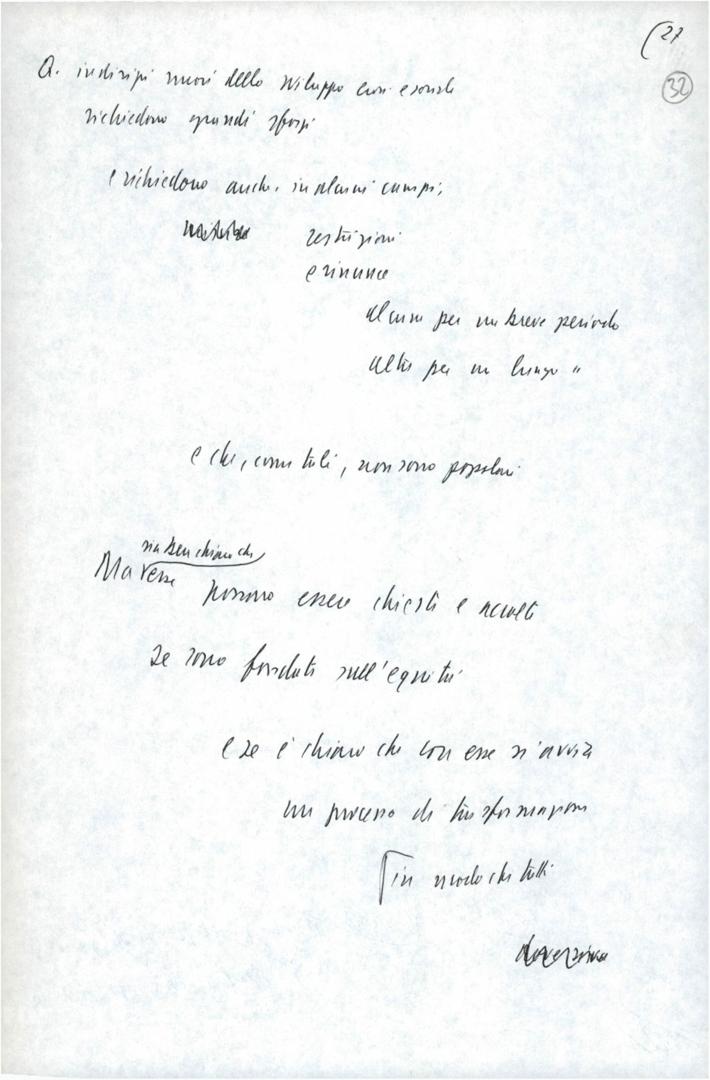 (27
32
Q. indirizzi nuovi dello sviluppo
richiedono grandi sforzi
e richiedono anche, in alcuni campi,
restrizioni
e rinunce
alcune per un breve periodo
altre per un lungo "
e che, come tali, non sono popolari
sia ben chiaro che
Ma esse possono essere chieste e accolte
se sono fondate sull'equità
e se è chiaro che con esse si avvia
un processo di trasformazione
in modo che tutti